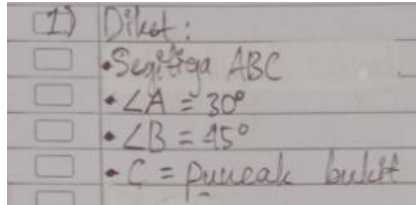 1) Diket:
• Segitiga ABC
• ∠A = 30°
• ∠B = 45°
• C = puncak bukit